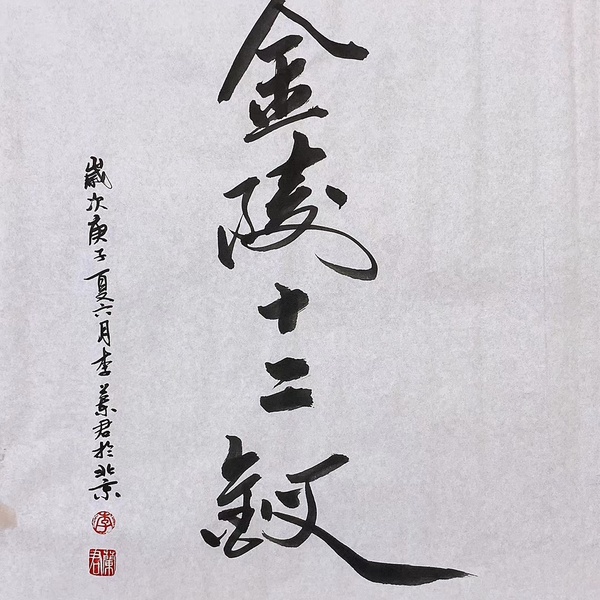 金陵十二釵
歲次庚子夏六月李蘭君於北京
李
蘭君